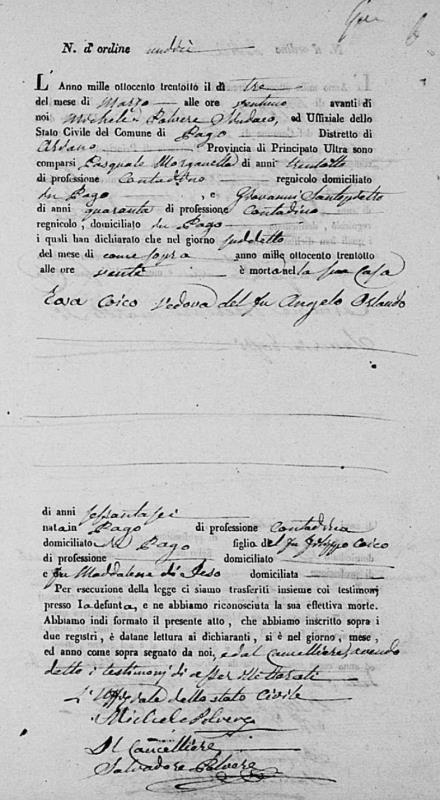 N. d'ordine undici
L'Anno mille ottocento trentotto il dì tre
del mese di Marzo alle ore ventuno avanti di
noi Michele Polvere Sindaco, ed Uffiziale dello
Stato Civile del Comune di Pago Distretto di
Provincia di Principato Ultra sono
comparsi Pasquale Morganella di anni trentotto
di professione Contadino regnicolo domiciliato
in Pago, e Giovanni Santopietro
di anni quaranta di professione Contadino
regnicolo, domiciliato in Pago
i quali han dichiarato che nel giorno suddetto
del mese di come sopra anno mille ottocento trentotto
alle ore venti è morta nel la sua Casa
Coico Vedova del fu Angelo Orlando
di anni sessantasei
nata in Pago di professione Contadina
domiciliato in Pago figlio del fu Filippo Coico
di professione domiciliato
e fu Maddalena di Leso domiciliata
Per esecuzione della legge ci siamo trasferiti insieme coi testimonj
presso la defunta, e ne abbiamo riconosciuta la sua effettiva morte.
Abbiamo indi formato il presente atto, che abbiamo inscritto sopra i
due registri, è datane lettura ai dichiaranti, si è nel giorno, mese,
ed anno come sopra segnato da noi, e dal Cancelliere avendo
detto i testimonj di esser illetterati
L'Uffiziale dello stato Civile
Michele Polvere
Il Cancelliere
Salvadore Polvere